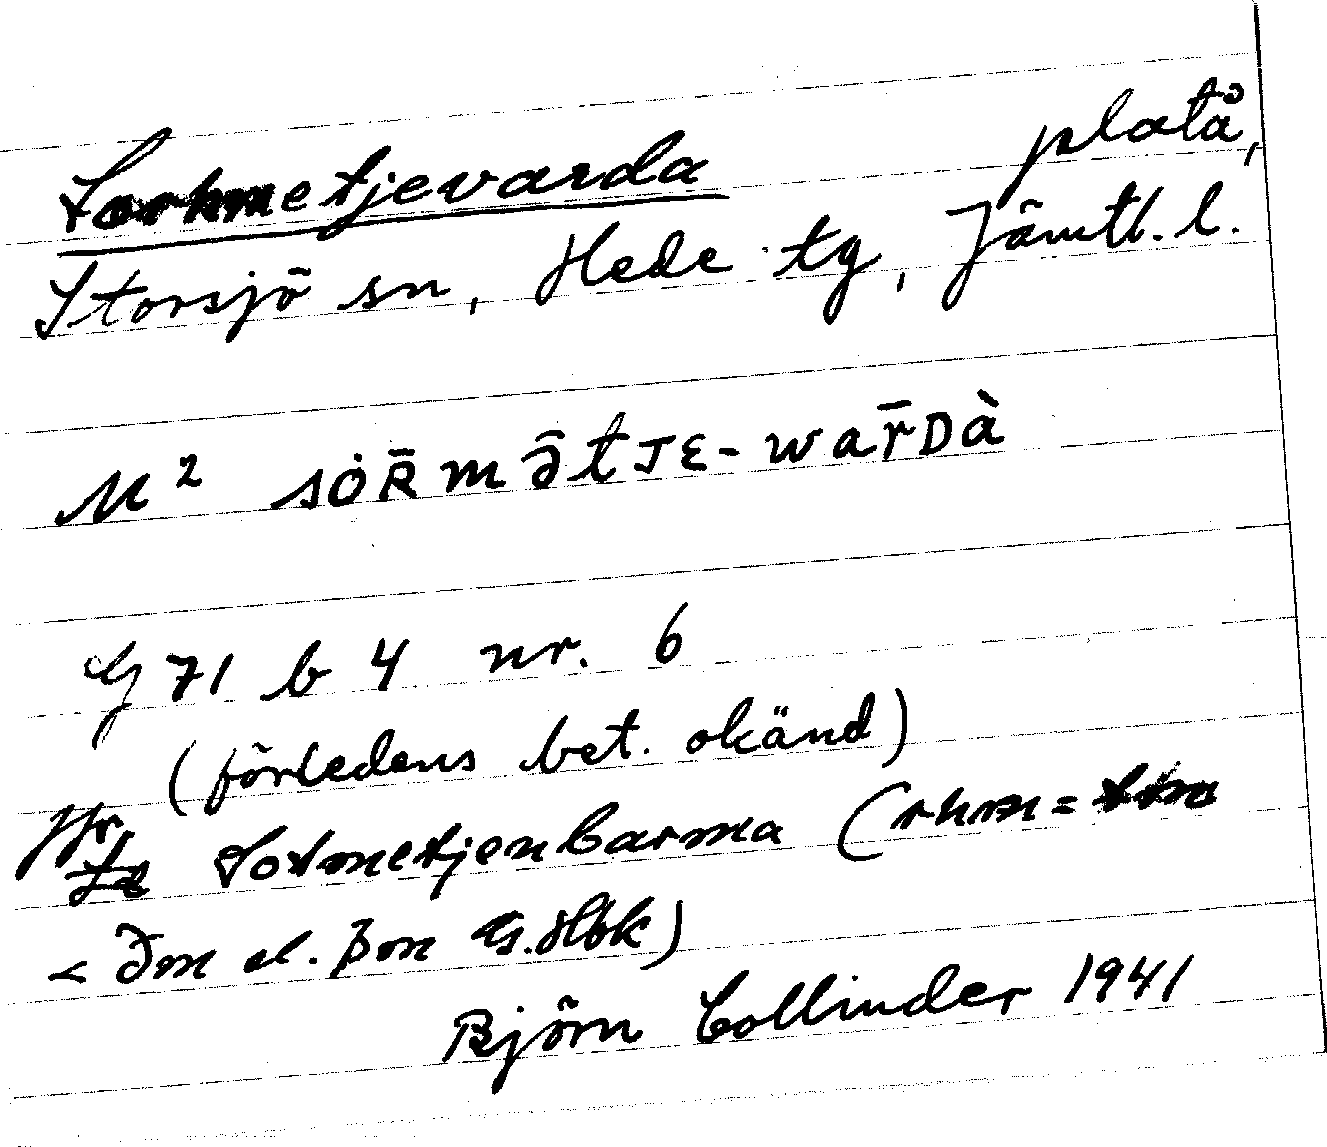 Sorkmetjevarda platå,
Storsjö sn, Hede tg, Jämtl. l.
M² SȮR̄mə̄tJε-waR̄Dà
G 71 b 4 nr. 6
(förledens bet. okänd)
Jfr Sotmetjenbarma (rkm =
< ðm el. þm G. Hbk)
Björn Collinder 1941